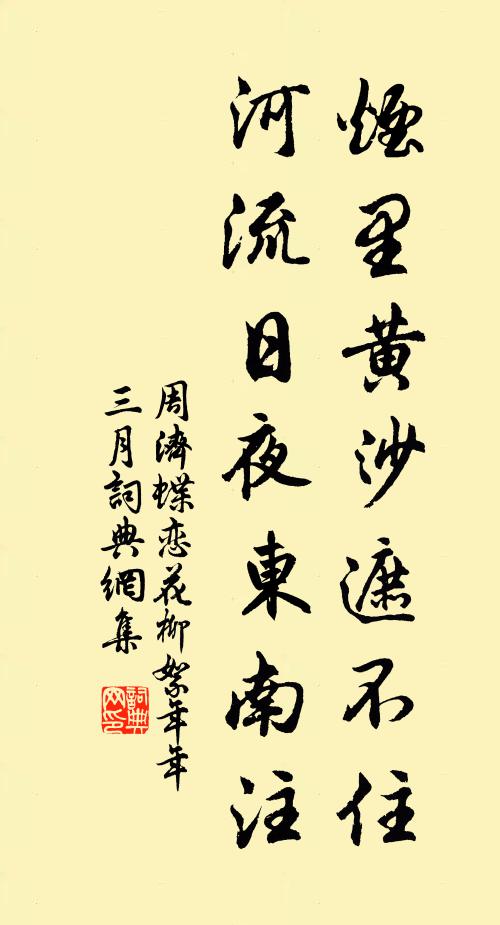 煙里黃沙遮不住
河流日夜東南注
周濟蝶恋花柳絮年年
三月詞典網集
詞典网印